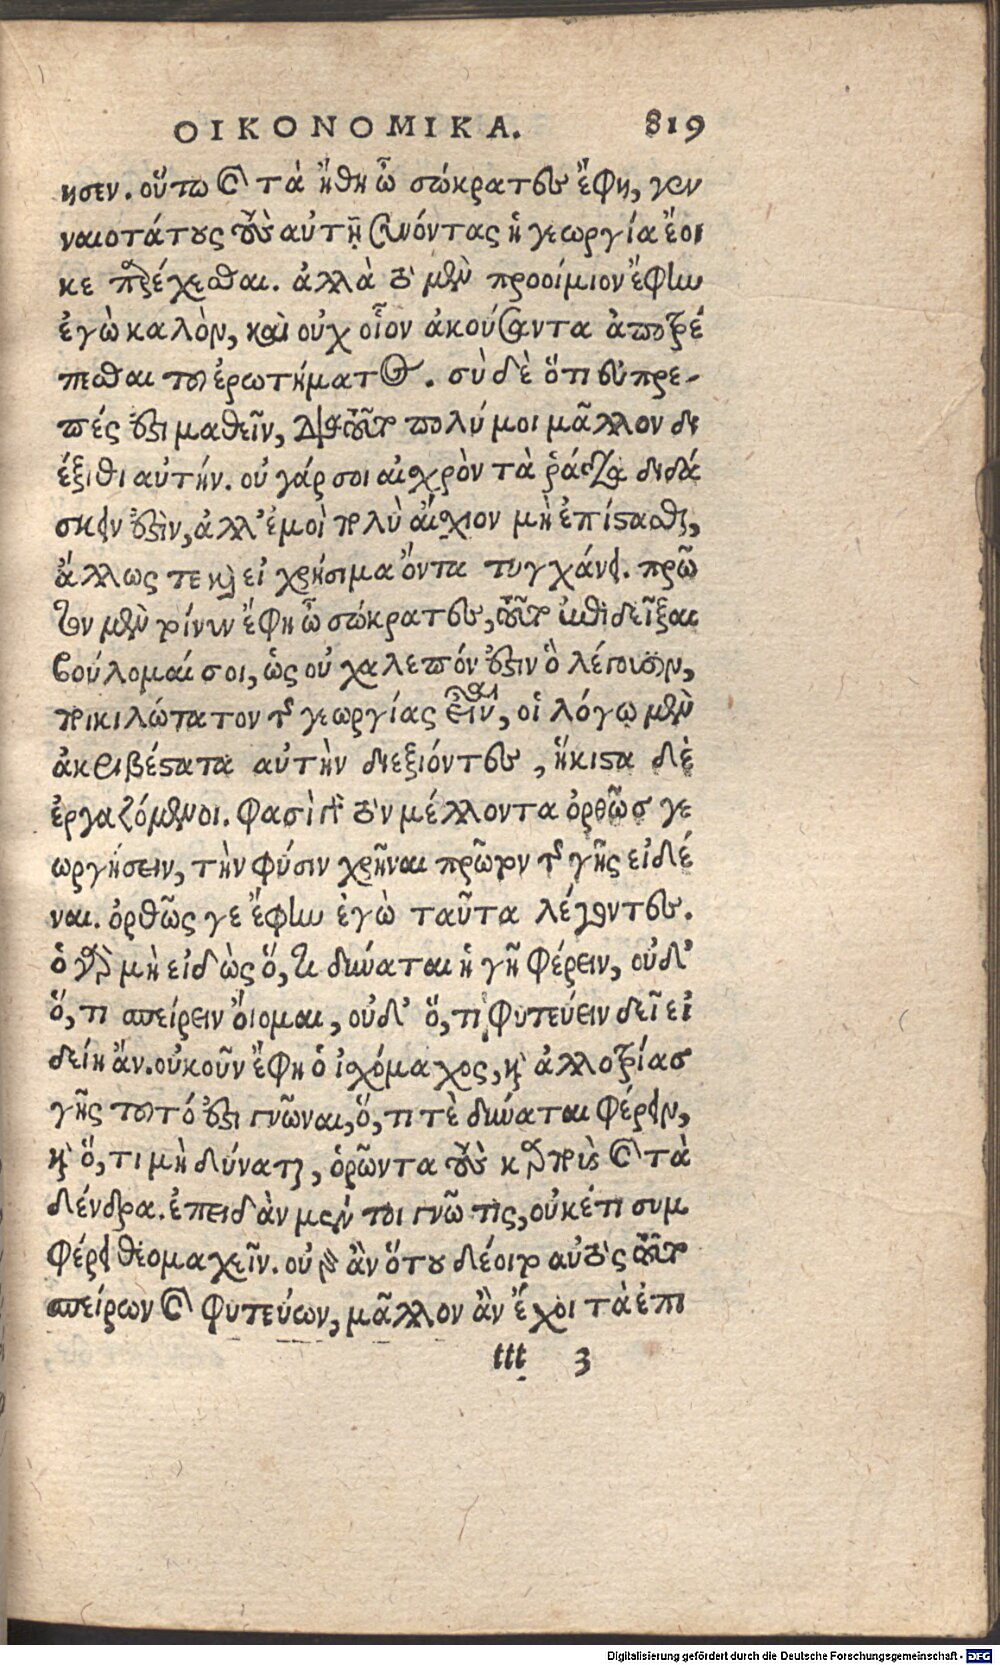 ΟΙΚΟΝΟΜΙΚΑ. 819
ησεν. οὕτω καὶ τὰ ἤθη ὦ σώκρατες ἔφη, γεν
ναιοτάτους τοὺς αὐτῇ συνόντας ἡ γεωργία ἔοι
κε παρέχεσθαι. ἀλλὰ τὸ μὲν προοίμιον ἔφην
ἐγὼ καλὸν, καὶ οὐχ οἷον ἀκούσαντα ἀποτρέ
πεσθαι τοῦ ἐρωτήματος. σὺ δὲ ὅτι εὐπρε-
πές ἐστι μαθεῖν, διὰ τοῦτο πολύ μοι μᾶλλον δι
έξιθι αὐτήν. οὐ γάρ σοι αἰσχρὸν τὰ ῥάδια διδά
σκειν ἐστὶν, ἀλλ' ἐμοὶ πολὺ αἴσχιον μὴ ἐπίστασθαι,
ἄλλως τε καὶ εἰ χρήσιμα ὄντα τυγχάνει. πρῶ
τον μὲν τοίνυν ἔφη ὦ σώκρατες, τοῦτο ἐπιδεῖξαι
βούλομαί σοι, ὡς οὐ χαλεπόν ἐστιν ὃ λέγουσιν,
ποικιλώτατον τῆς γεωργίας εἶναι, οἱ λόγῳ μὲν
ἀκριβέστατα αὐτὴν διεξιόντες, ἥκιστα δὲ
ἐργαζόμενοι. φασὶ γὰρ τὸν μέλλοντα ὀρθῶς γε
ωργήσειν, τὴν φύσιν χρῆναι πρῶτον τῆς γῆς εἰδέ
ναι. ὀρθῶς γε ἔφην ἐγὼ ταῦτα λέγοντες.
ὁ γὰρ μὴ εἰδὼς ὅ, τι δύναται ἡ γῆ φέρειν, οὐδ'
ὅ, τι σπείρειν οἴομαι, οὐδ' ὅ, τι φυτεύειν δεῖ εἰ
δείη ἄν. οὐκοῦν ἔφη ὁ ἰσχόμαχος, καὶ ἀλλοτρίας
γῆς τοῦτό ἐστι γνῶναι, ὅ, τι τὲ δύναται φέρειν,
καὶ ὅ, τι μὴ δύναται, ὁρῶντα τοὺς καρποὺς καὶ τὰ
δένδρα. ἐπειδὰν μέντοι γνῶ τις, οὐκέτι συμ
φέρει θεομαχεῖν. οὐ γὰρ ἂν ὅτου δέοιτο αὐτὸς τοῦτο
σπείρων καὶ φυτεύων, μᾶλλον ἂν ἔχοι τὰ ἐπι
ttt 3
Digitalisierung gefördert durch die Deutsche Forschungsgemeinschaft - DFG